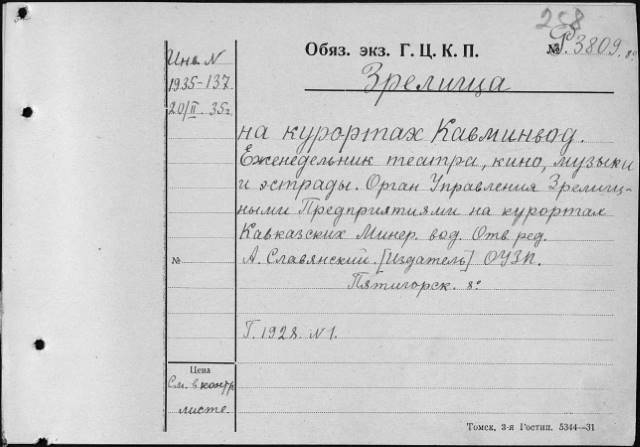 258
Обяз. экз. Г. Ц. К. П.
№ Р. 3809. 8º
Инв. N
1935-137
20/II. 35г.
Зрелища
на курортах Кавминвод.
Еженедельник театра, кино, музыки
и эстрады. Орган Управления Зрелищ-
ными Предприятиями на курортах
Кавказских Минер. вод. Отв. ред.
№
А. Славянский. [Издатель] ОУЗП.
Пятигорск. 8º
Г. 1928. N1.
Цена
См. в контр
листе.
Томск, 3-я Гостип. 5344—31